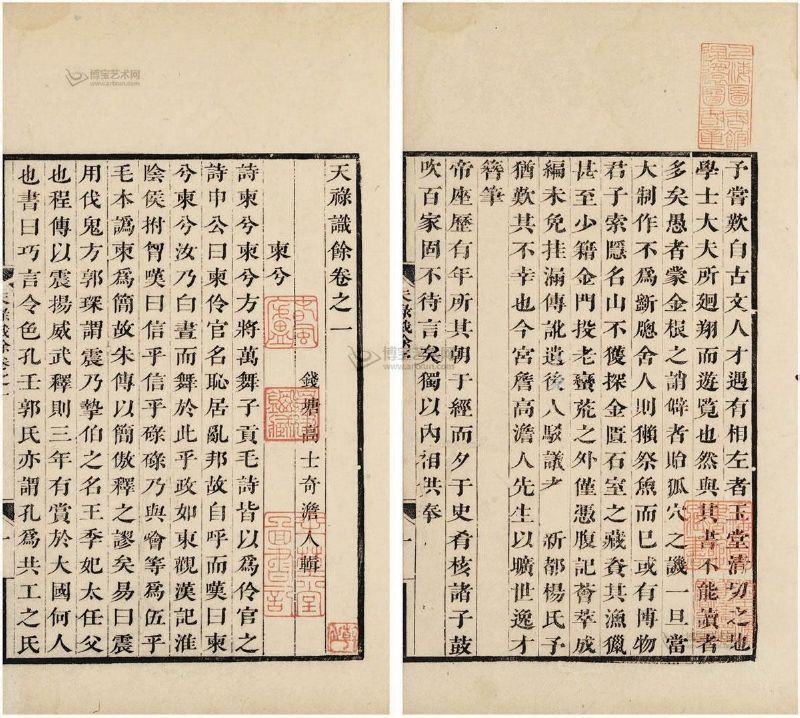 上海圖書館
退還圖書章
予嘗歎自古文人才遇有相左者玉堂清切之地
學士大夫所廻翔而遊覧也然與其書不能讀者
多矣愚者蒙金根之誚僻者貽狐穴之譏一旦當
大制作不爲斲窻舍人則獺祭魚而已或有博物
君子索隱名山不獲探金匱石室之藏資其漁獵
甚至少籍金門投老蠻荒之外僅憑腹記薈萃成
編未免挂漏傳訛遺後人駁議之 新都楊氏予
猶歎其不幸也今宮詹高澹人先生以曠世逸才
簪筆
帝座歷有年所其朝于經而夕于史肴核諸子鼓
吹百家固不待言矣獨以內相供奉
天祿識餘卷之一
錢塘高士奇澹人輯
柬兮
詩柬兮柬兮方將萬舞子貢毛詩皆以爲伶官之
詩申公曰柬伶官名恥居亂邦故自呼而嘆曰柬
兮柬兮汝乃白晝而舞於此乎政如東觀漢記淮
陰侯拊智嘆曰信乎信乎碌碌乃與噲等爲伍乎
毛本譌柬爲簡故朱傳以簡傲釋之謬矣易曰震
用伐鬼方郭琛謂震乃摯伯之名王季妃太任父
也程傳以震揚威武釋則三年有賞於大國何人
也書曰巧言令色孔壬郭氏亦謂孔爲共工之氏
博宝艺术网
www.artxun.com
博宝艺术网
www.artxun.com